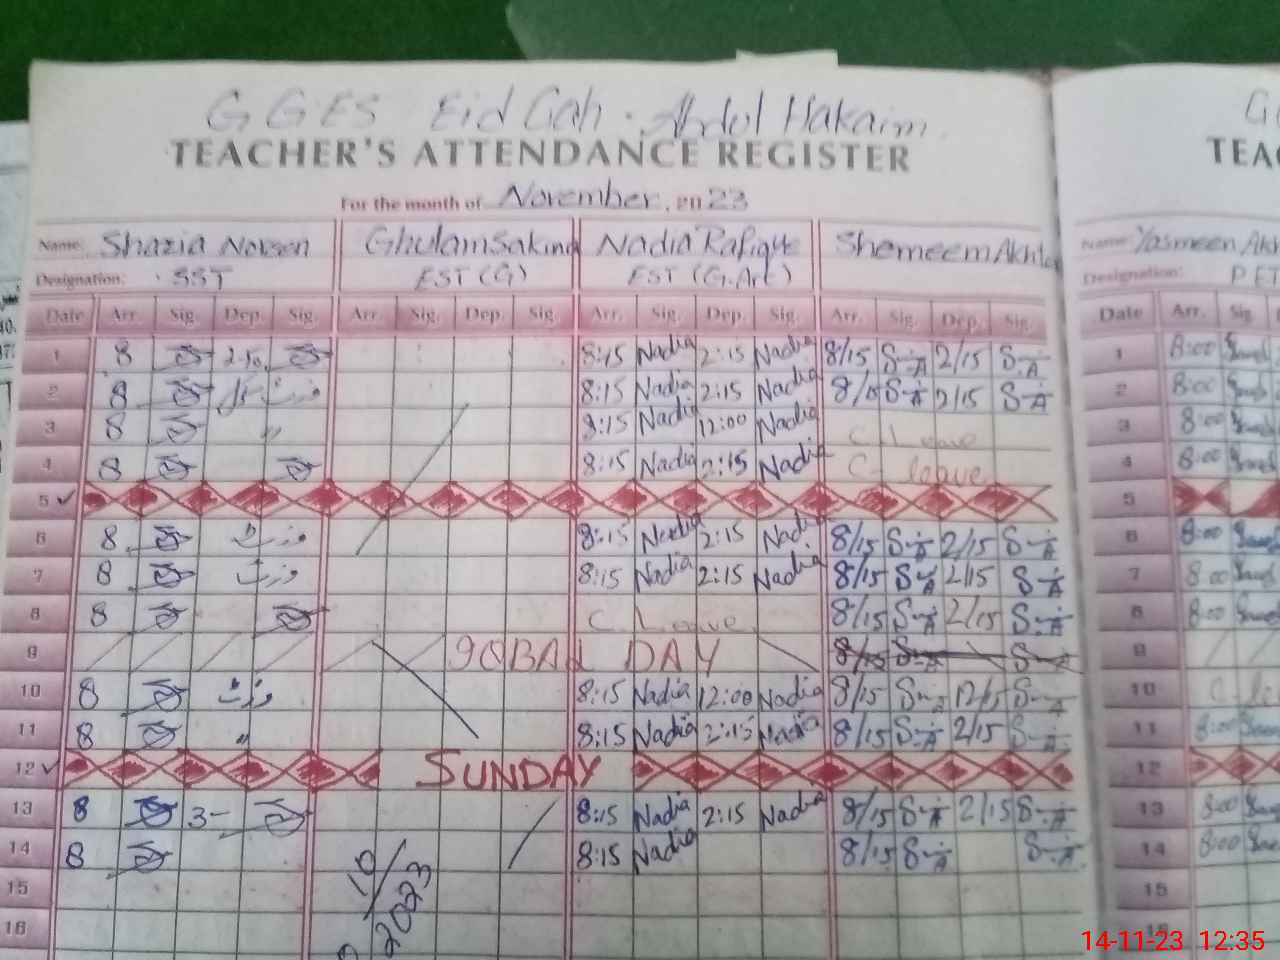 G G E S Eid Gah . Abdul Hakaim G
TEACHER'S ATTENDANCE REGISTER TEAC
For the month of November, 20 23
Name: Shazia Noreen Ghulam Sakina Nadia Rafique Shemeem Akhta Name: Yasmeen Akh
Designation: SST EST (G) EST (G.Art) Designation: PET
Date Arr. Sig. Dep. Sig. Arr. Sig. Dep. Sig. Arr. Sig. Dep. Sig. Arr. Sig. Dep. Sig. Date Arr. Sig.
1 8 2-50 8:15 Nadia 2:15 Nadia 8/15 S-A 2/15 S-A 1 8:00
2 8 8:15 Nadia 2:15 Nadia 8/15 S-A 2/15 S-A 2 8:00
3 8 〃 8:15 Nadia 12:00 Nadia C Leave 3 8:00
4 8 8:15 Nadia 2:15 Nadia C- leave 4 8:00
5 ✓ 5
6 8 8:15 Nadia 2:15 Nadia 8/15 S-A 2/15 S-A 6 8:00
7 8 8:15 Nadia 2:15 Nadia 8/15 S-A 2/15 S-A 7 8:00
8 8 C Leave 8/15 S-A 2/15 S-A 8 8:00
9 9QBAL DAY 8/15 S-A S-A 9
10 8 8:15 Nadia 12:00 Nadia 8/15 12/15 10 C-le
11 8 〃 8:15 Nadia 2:15 Nadia 8/15 S-A 2/15 S-A 11 8:00
12 ✓ SUNDAY 12
13 8 3- 8:15 Nadia 2:15 Nadia 8/15 S-A 2/15 S-A 13 8:00
14 8 8:15 Nadia 8/15 S-A S-A 14 8:00
15 10 15
16 2023
14-11-23 12:35